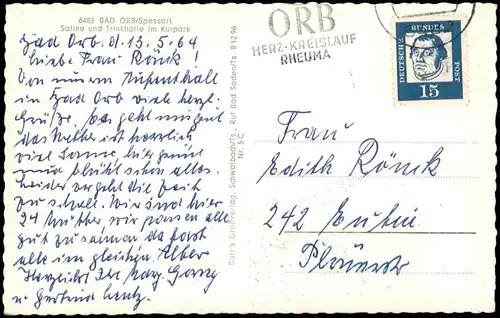 6482 BAD ORB/Spessart
Saline und Trinkhalle im Kurpark
Bad Orb. d. 13.5.64
Liebe Frau Rönck!
Von unserm Aufenthalt
in Bad Orb viele herzl.
Grüße. Es geht uns gut
das Wetter ist herrlich
viel Sonne, hier grünt
und blüht schon alles.
Leider vergeht die Zeit
zu schnell. Wir sind hier
24 Mütter wir passen alle
gut zusammen da fast
alle im gleichen Alter
Herzlichst Ihr
u Gertrud Lentz.
Karr's Großverlag, Schwalbach/Ts. Ruf Bad Soden/Ts. 81296
Nr. 5C
ORB
HERZ-KREISLAUF
RHEUMA
DEUTSCHE BUNDES POST
15
Frau
Edith Rönck
242 Eutin
Plönerstr